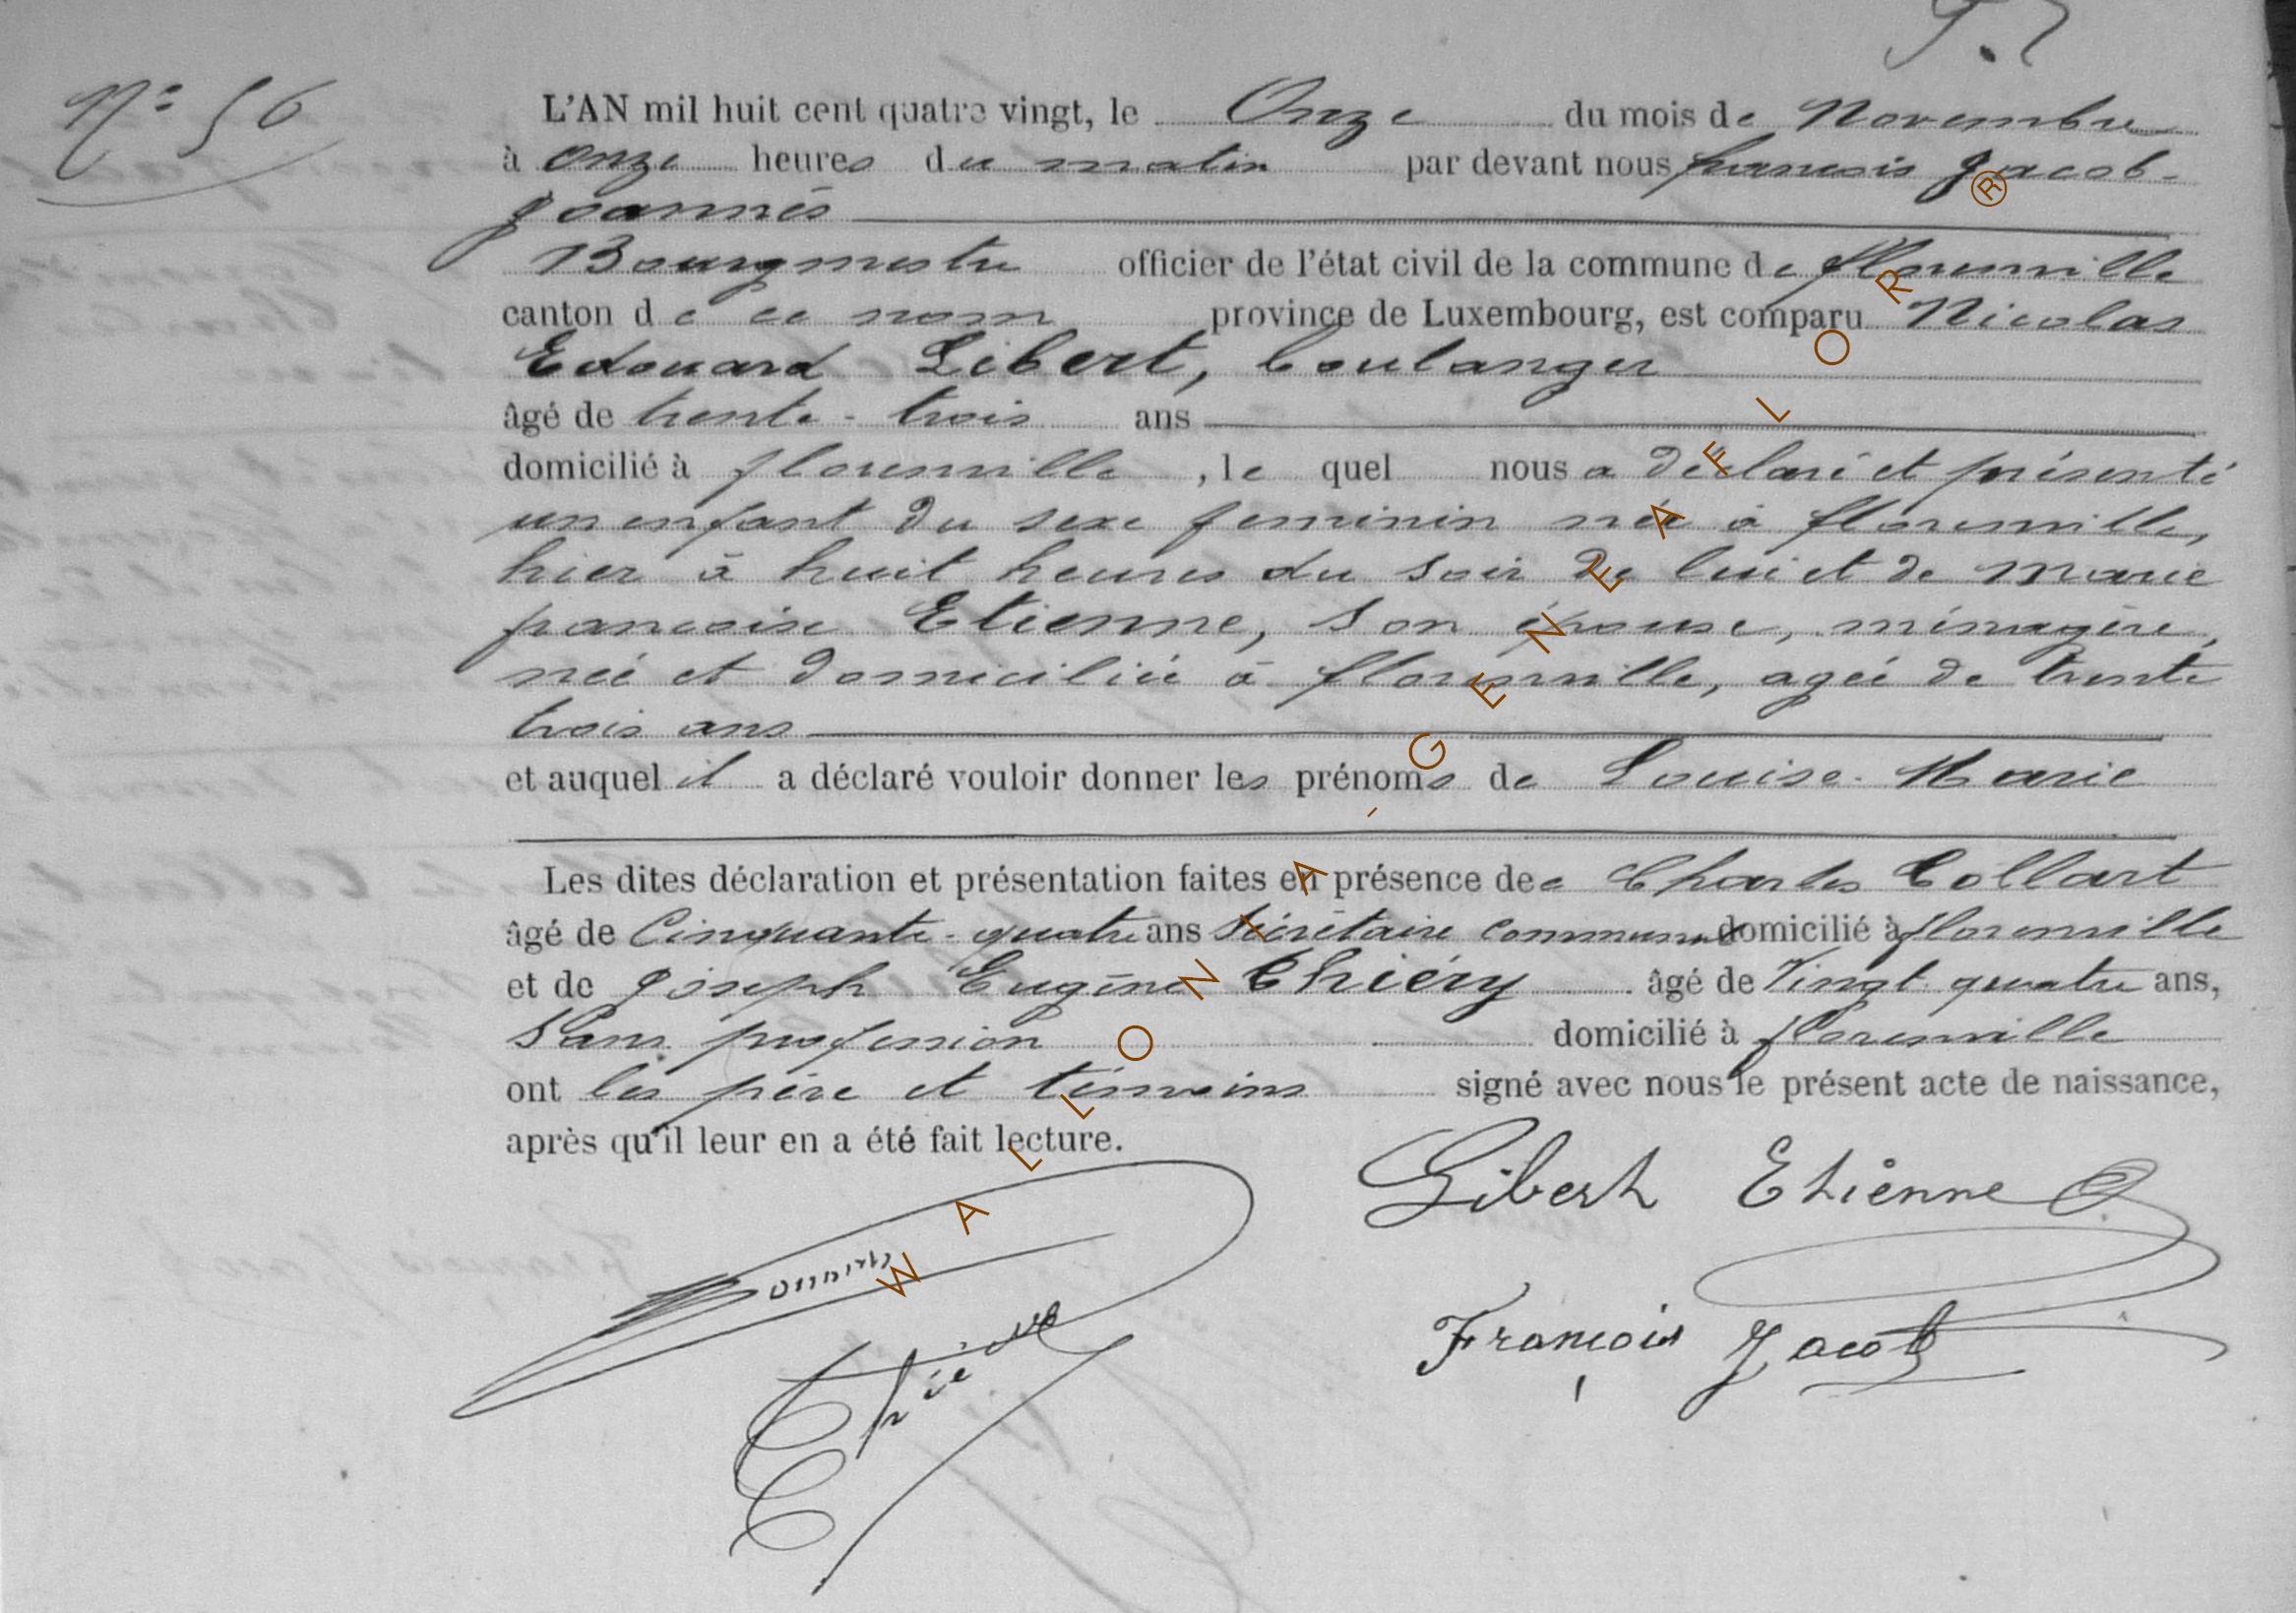 N° 56
L'AN mil huit cent quatre vingt, le Onze du mois de Novembre
à onze heures du matin par devant nous françois Jacob-
Joannès
Bourgmestre officier de l'état civil de la commune de florenville
canton de ce nom province de Luxembourg, est comparu Nicolas
Edouard Libert, boulanger
âgé de trente-trois ans
domicilié à florenville, le quel nous a déclaré et présenté
un enfant du sexe feminin née à florenville,
hier à huit heures du soir de lui et de Marie
françoise Etienne, son épouse, ménagère,
née et domiciliée à florenville, agée de trente
trois ans
et auquel il a déclaré vouloir donner les prénoms de Louise-Marie
Les dites déclaration et présentation faites en présence de Charles Collart
âgé de Cinquante-quatre ans Sécrétaire communal domicilié à florenville
et de Joseph Eugène Thiéry âgé de Vingt quatre ans,
Sans profession domicilié à florenville
ont les père et témoins signé avec nous le présent acte de naissance,
après qu'il leur en a été fait lecture.
Libert Etienne
François Jacob
WALLONIA - GENEAFLOR ®